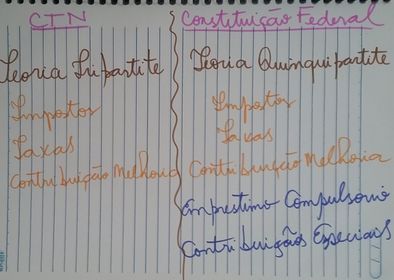 CTN
Teoria Tripartite
Impostos
Taxas
Contribuição Melhoria
Constituição Federal
Teoria Quinquipartite
Impostos
Taxas
Contribuição Melhoria
Emprestimo Compulsorio
Contribuições Especiais